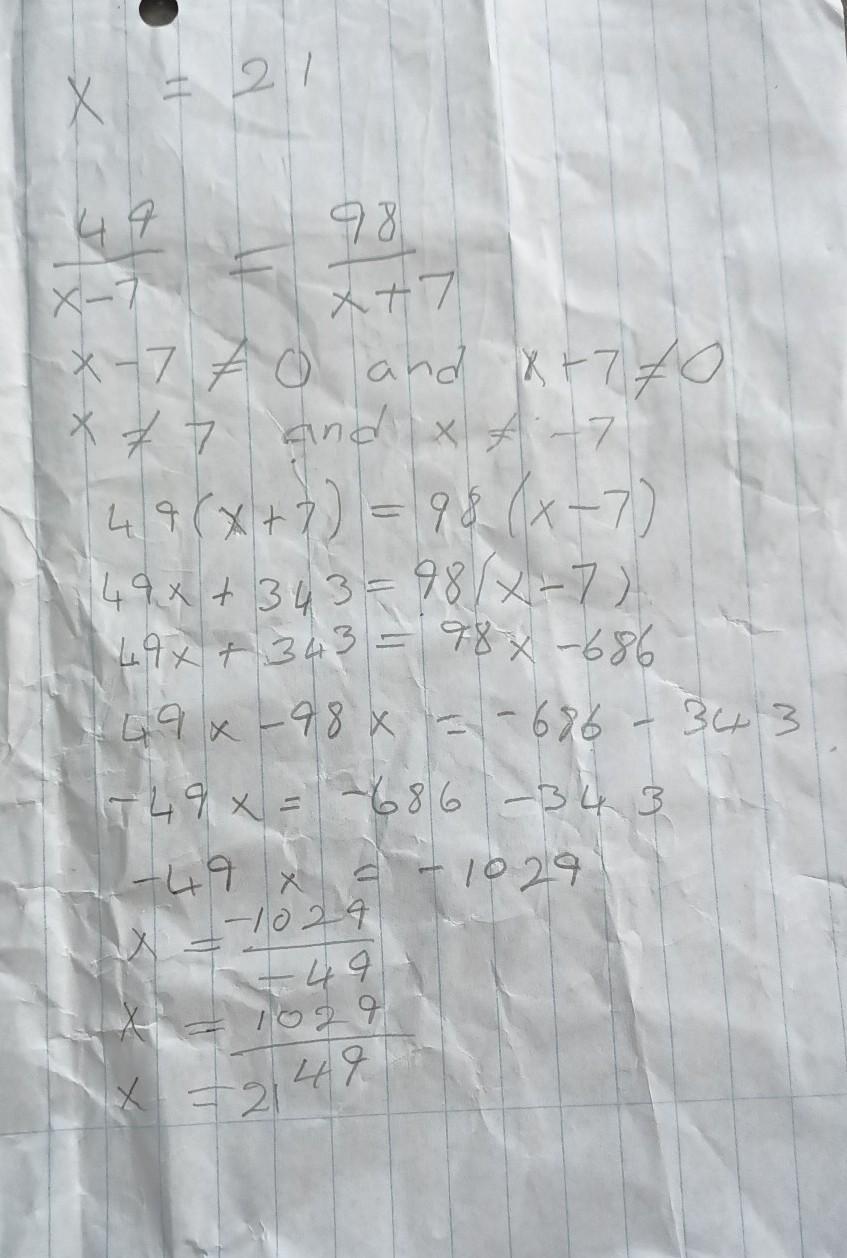 x = 21
49/x-7 = 98/x+7
x-7 ≠ 0 and x+7 ≠ 0
x ≠ 7 and x ≠ -7
49(x+7) = 98(x-7)
49x + 343 = 98(x-7)
49x + 343 = 98x - 686
49x - 98x = -686 - 343
-49x = -686 - 343
-49x = -1029
x = -1029/-49
x = 1029/49
x = 21